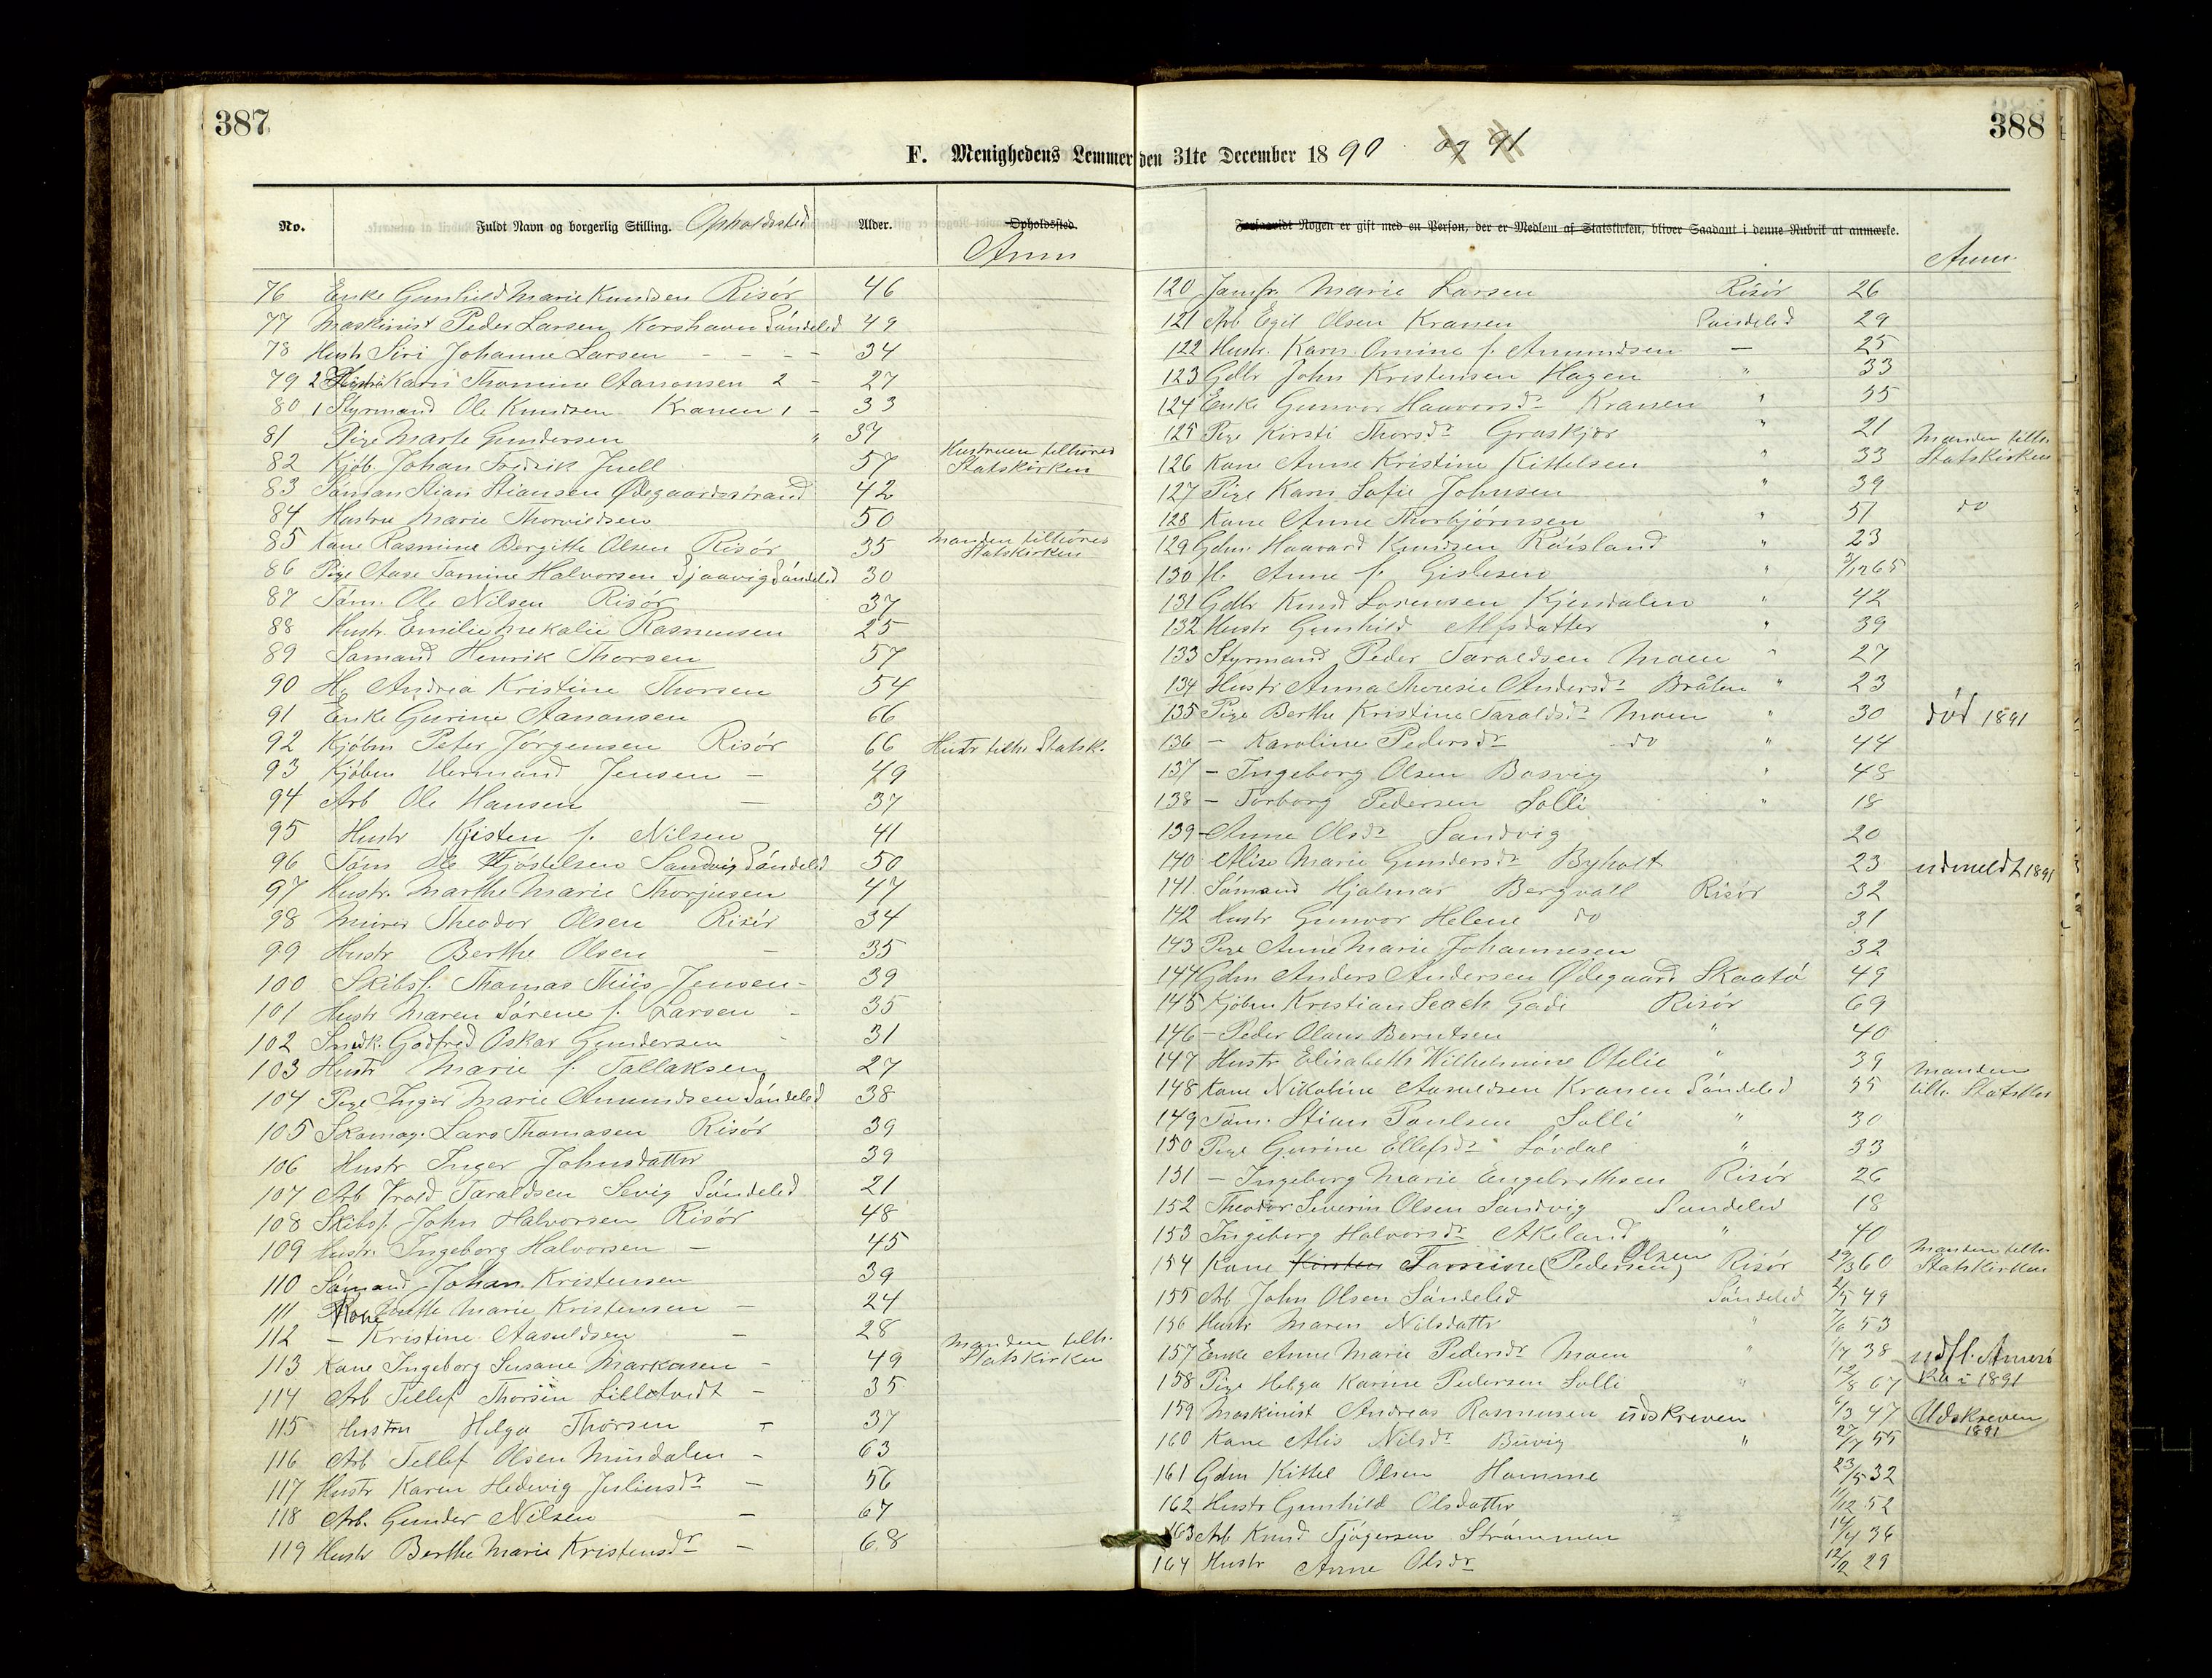 387
388
F. Menighedens Lemmer den 31te December 1890 og 91
No.
Fuldt Navn og borgerlig Stilling. Opholdssted
Alder.
Opholdssted.
Anm
Forsaavidt Nogen er gift med en Person, der er Medlem af Statskirken, bliver Saadant i denne Rubrik at anmærke.
Anm.
76 Enke Gunhild Marie Knudsen Risör 46
77 Maskinist Peder Larsen Korshavn Söndeled 49
78 Hustr Siri Johanne Larsen - - - - 34
79 2 Hustr Karn Thomine Aanonsen 2 - 27
80 1 Styrmand Ole Knudsen Kranen 1 - 33
81 Pige Marte Gundersen " 37
82 Kjöb. Johan Fredrik Juell 57 Hustruen tilhörer Statskirken
83 Söman Stian Stiansen Ødegaardsstrand 42
84 Hustru Marie Thorvildsen 50
85 Kone Rasmine Bergitte Olsen Risör 35 Manden tilhörer Statskirken
86 Pige Aase Tomine Halvorsen Sjaavig Söndeled 30
87 Töm. Ole Nilsen Risör 37
88 Hustr. Emilie Mekalie Rasmussen 25
89 Sömand Henrik Thorsen 57
90 H. Andrea Kristine Thorsen 54
91 Enke Gurine Aanonsen 66
92 Kjöbm Peter Jörgensen Risör 66 Hustr tilhr Statsk.
93 Kjöbm Hermand Jensen - 49
94 Arb Ole Hansen - 37
95 Hustr Kjisten f. Nilsen 41
96 Töm Ole Fjöstelsen Sandvig Söndeled 50
97 Hustr. Marthe Marie Thorjusen 47
98 Murer Theodor Olsen Risör 34
99 Hustr Berthe Olsen - 35
100 Skibsf. Thomas Thiis Jensen - 39
101 Hustr Maren Sörene f. Larsen - 35
102 Snedk. Godfred Oskar Gundersen - 31
103 Hustr Marie f. Tallaksen 27
104 Pige Inger Marie Amundsen Söndeled 38
105 Skomag. Lars Thomasen Risör 39
106 Hustr Inger Johnsdatter 39
107 Arb Taraldsen Sevig Söndeled 21
108 Skibsf. John Halvorsen Risör 48
109 Hustr. Ingeborg Halvorsen - 45
110 Sömand Johan Kristensen 39
111 Kone Marie Kristensen - 24
112 - Kristine Aasuldsen - 28
113 Kone Ingeborg Susane Markusen - 49 Manden tilh. Statskirken
114 Arb Tellef Thorsen Lilletvedt - 35
115 Hustru Helga Thorsen - 37
116 Arb Tellef Olsen Mindalen - 63
117 Hustr Karen Hedevig Juliusdr - 56
118 Arb. Gunder Nilsen - 67
119 Hustr Berthe Marie Kristensdr - 68
120 Jomfr. Marie Larsen Risör 26
121 Arb Egil Olsen Kranen Söndeled 29
122 Hustr. Karn Omine f. Amundsen - 25
123 Gdbr John Kristensen Hagen " 33
124 Enke Gunvor Haavorsdr Kranen " 55
125 Pige Kirsti Thorsdr Graskjær " 21
126 Kone Anne Kristine Kittelsen " 33 Manden tilhr Statskirken
127 Pige Karn Sofie Johnsen " 39
128 Kone Anne Thorbjörnsen " 51 do
129 Gdm. Haavard Knudsen Röisland " 23
130 H. Anne f. Gislesen " 3/12 65
131 Gdbr Knud Lorensen Kjendalen " 42
132 Hustr Gunhild Alfsdatter " 39
133 Styrmand Peder Taraldsen Moen " 27
134 Hustr. Anna Theresie Andersdr Bråten " 23
135 Pige Berthe Kristine Taraldsdr Moen " 30 död 1891
136 - Karoline Pedersdr do " 44
137 - Ingeborg Olsen Bosvig " 48
138 - Torborg Pedersen Solli " 18
139 - Anne Olsdr Sandvig 20
140 Alise Marie Gundersdr Byholt 23 udmeldt 1891
141 Sömand Hjalmar Bergvall Risör 32
142 Hustr Gunvor Helene do 31
143 Pige Anne Marie Johannesen 32
144 Gdm Anders Andersen Ødegaard Skaatö 49
145 Kjöbm Kristian Seach Gade Risör 69
146 - Peder Olaus Berntsen " 40
147 Hustr. Elisabeth Wilhelmine Otelie " 39
148 Kone Nikoline Aasuldsen Kranen Söndeled 55 Manden tilh. Statskir
149 Töm. Stian Paulsen Solli " 30
150 Pige Gurine Ellefsdr Lövdal " 33
151 - Ingeborg Marie Engebrethsen Risör 26
152 Theodor Severin Olsen Sandvig Söndeled 18
153 Ingeborg Halvorsdr Akeland " 40
154 Kone Kirsten Tomine (Pedersen) Olsen Risör 29/3 60 Manden tilhr Statskirken
155 Arb John Olsen Söndeled Söndeled 2/5 49
156 Hustr Maren Nilsdattr " 53
157 Enke Anne Marie Pedersdr Moen " 38
158 Pige Helga Karine Pedersen Solli " 12/8 67 udfl. Amerika i 1891
159 Maskinist Andreas Rasmussen udskreven 6/3 47 Udskreven 1891
160 Kone Alis Nilsdr Buvig " 27/7 55
161 Gdm Kittel Olsen Homme 23/5 32
162 Hustr Gunhild Olsdatter 11/12 52
163 Arb Knud Tjögersen Strömmen 36
164 Hustr Anne Olsdr 12/2 29